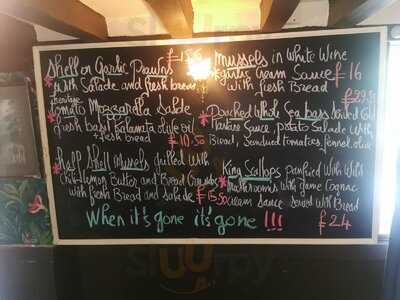 Shell on Garlic Prawns £15
with Salade and fresh bread
Heritage
tomato Mozzarella Salade
fresh basil Kalamata olive oil
fresh bread £10.50
Half Shell mussels grilled with
Chilli-lemon Butter and Bread Crumbs
with fresh Bread and Salade £15.50
mussels in White Wine
garlic Cream Sauce £16
with fresh Bread
£29.50
Poached Whole Sea bass
Tartare Sauce, potato Salade with
Bread, Sundried tomatoes, fennel, olive
King Scallops panfried With Wild
mushrooms with game Cognac
Cream Sauce Served with Bread
£24
When it's gone it's gone !!!